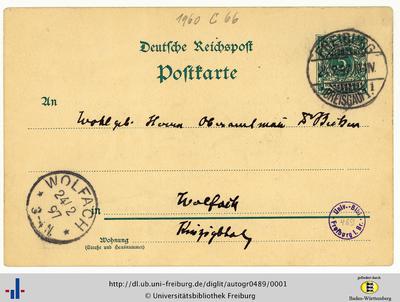 1960 C 66
Deutsche Reichspost
Postkarte
FREIBURG
BREISGAU
1
An
Wohlgeb. Herrn Oberamtmann
Wolfach
Kinzigthal
WOLFACH
24/2
97
Wohnung
(Straße und Hausnummer)
Univ.-Bibl.
Freiburg i. Br.
http://dl.ub.uni-freiburg.de/diglit/autogr0489/0001
© Universitätsbibliothek Freiburg
gefördert durch
Baden-Württemberg